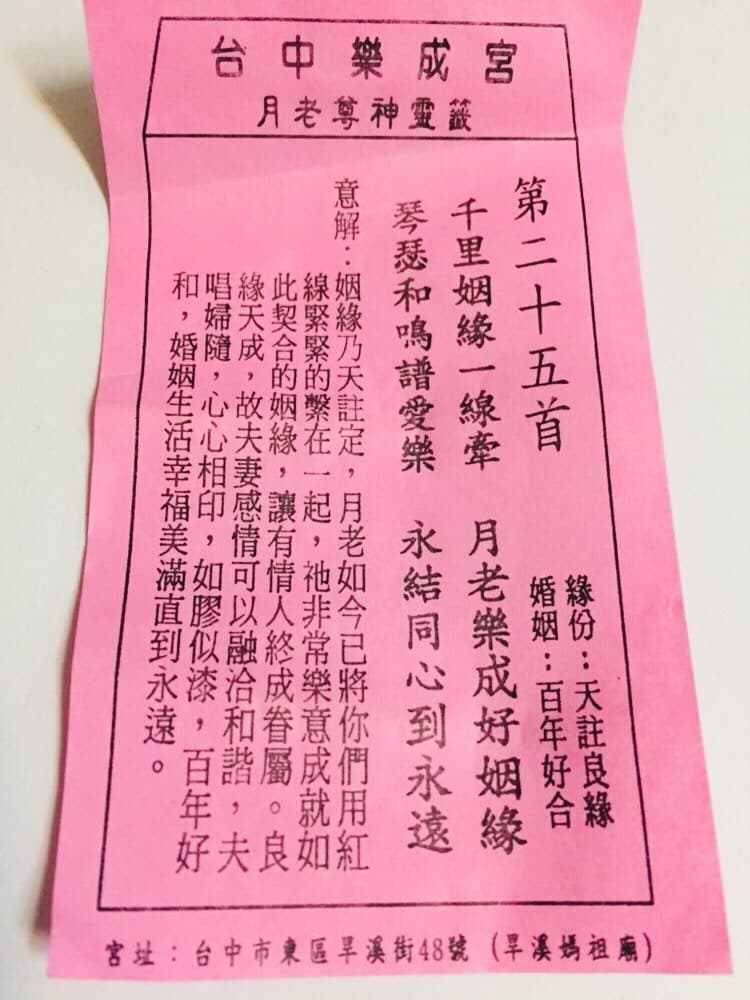 台中樂成宮
月老尊神靈籤
第二十五首
緣份：天註良緣
婚姻：百年好合
千里姻緣一線牽　月老樂成好姻緣
琴瑟和鳴譜愛樂　永結同心到永遠
意解：姻緣乃天註定，月老如今已將你們用紅
線緊緊的繫在一起，祂非常樂意成就如
此契合的姻緣，讓有情人終成眷屬。良
緣天成，故夫妻感情可以融洽和諧，夫
唱婦隨，心心相印，如膠似漆，百年好
和，婚姻生活幸福美滿直到永遠。
宮址：台中市東區旱溪街48號（旱溪媽祖廟）